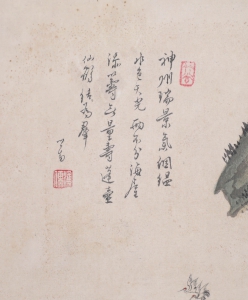 神州瑞景氣絪縕
水色天光兩不分海屋
添籌無量壽蓬壺
仙鶴結為群